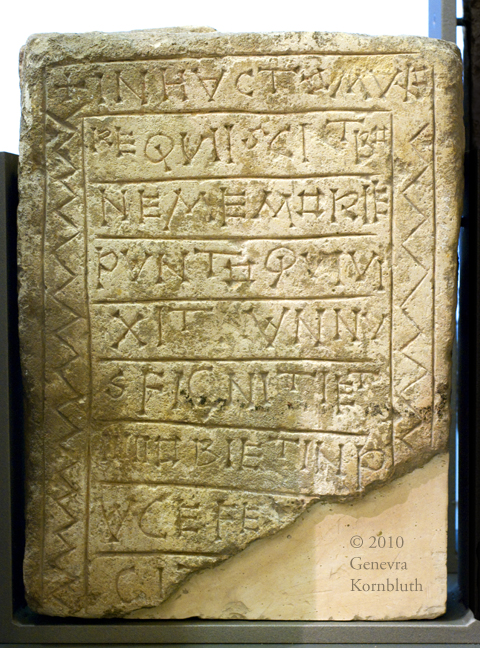 + IN HVC TVMVLO
REQVIISCIT BO
NE MEMORIE
PVNTO QVI VI
XIT ANNV
S FIGNITI ET
IIII OBIET IN P
ACE FE
CI
© 2010
Genevra
Kornbluth